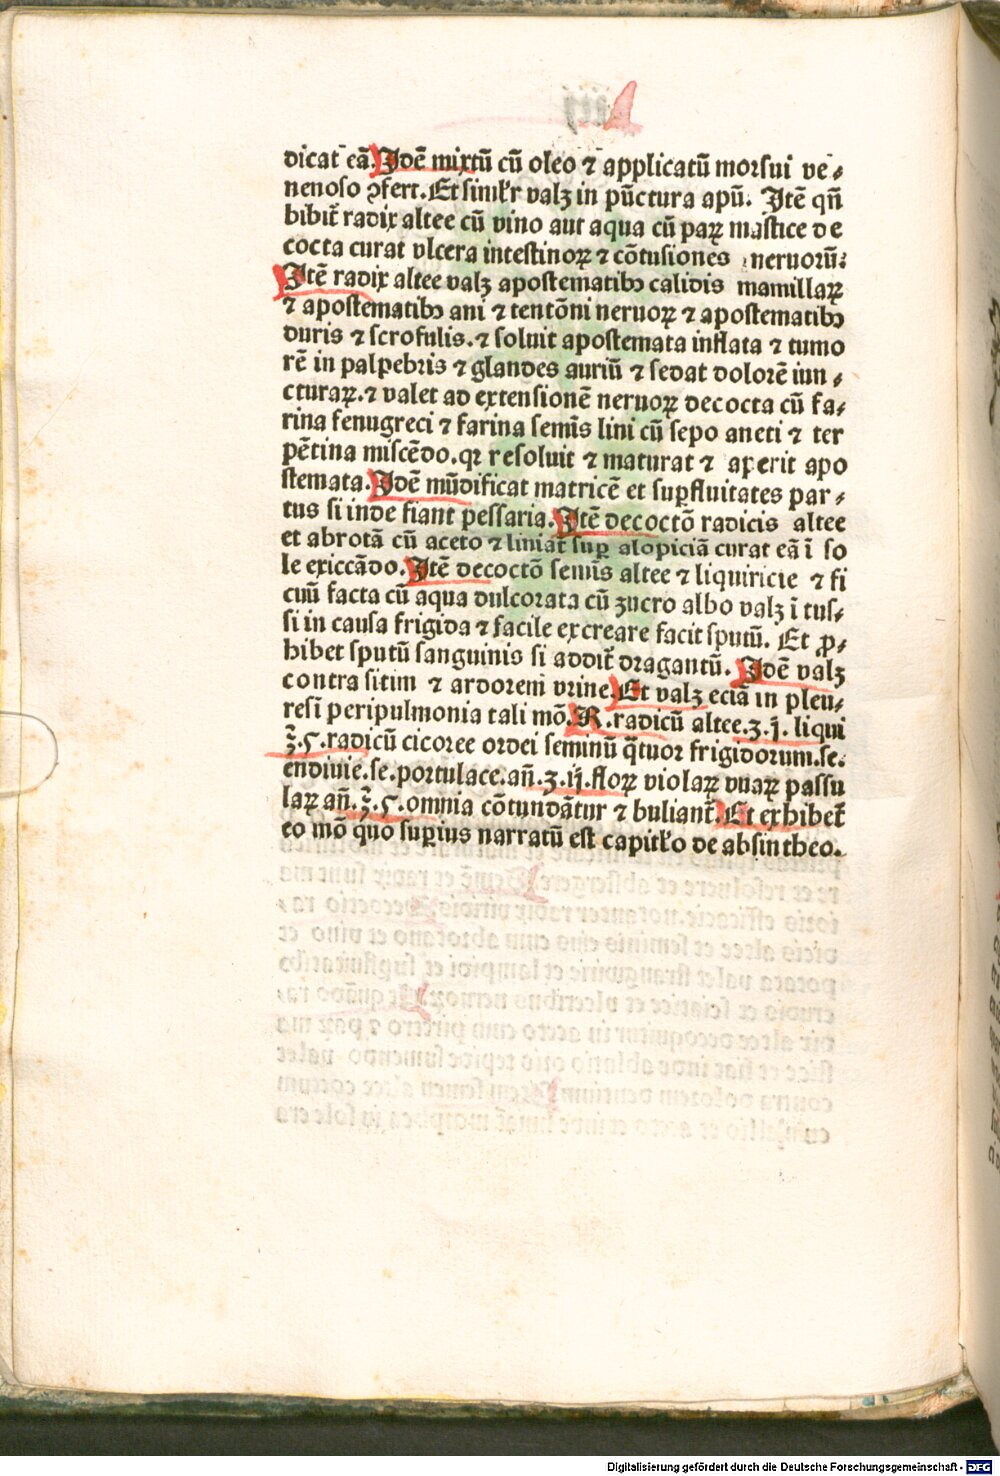 dicat eā. Idē mixtū cū oleo ⁊ applicatū morsui ve⸗
nenoso ꝯfert. Et simil'r valꝫ in pūctura apū. Itē qn̄
bibit̄ radix altee cū vino aut aqua cū paꝝ mastice de
cocta curat vlcera intestinoꝝ ⁊ cōtusiones neruorū:
Itē radix altee valꝫ apostematibꝰ calidis mamillaꝝ
⁊ apostematibꝰ ani ⁊ tentōni neruoꝝ ⁊ apostematibꝰ
duris ⁊ scrofulis. ⁊ soluit apostemata inflata ⁊ tumo
rē in palpebris ⁊ glandes auriū ⁊ sedat dolorē iun⸗
cturaꝝ. ⁊ valet ad extensionē neruoꝝ decocta cū fa⸗
rina fenugreci ⁊ farina semīs lini cū sepo aneti ⁊ ter
pētina miscēdo. qꝛ resoluit ⁊ maturat ⁊ aperit apo
stemata. Idē mūdificat matricē et suꝑfluitates par⸗
tus si inde fiant pessaria. Itē decoctō radicis altee
et abrotā cū aceto ⁊ liniat̄ suꝑ alopiciā curat eā ī so
le exiccādo. Itē decoctō semīs altee ⁊ liquiricie ⁊ fi
cuū facta cū aqua dulcorata cū zucro albo valꝫ ī tus⸗
si in causa frigida ⁊ facile excreare facit sputū. Et ꝓ⸗
hibet sputū sanguinis si addit̄ dragantū. Idē valꝫ
contra sitim ⁊ ardorem vrine. Et valꝫ eciā in pleu⸗
resi peripulmonia tali mō. R. radicū altee. ʒ. j. liqui
℥. ς. radicū cicoree ordei seminū q̄tuor frigidorum. se.
endiuie. se. portulace. an̄. ʒ. ij. floꝝ violaꝝ vuaꝝ passu
laꝝ an̄. ℥. ς. omnia cōtundātur ⁊ buliant̄. Et exhibet̄
eo mō quo suꝑius narratū est capitl'o de absintheo.
Digitalisierung gefördert durch die Deutsche Forschungsgemeinschaft - DFG